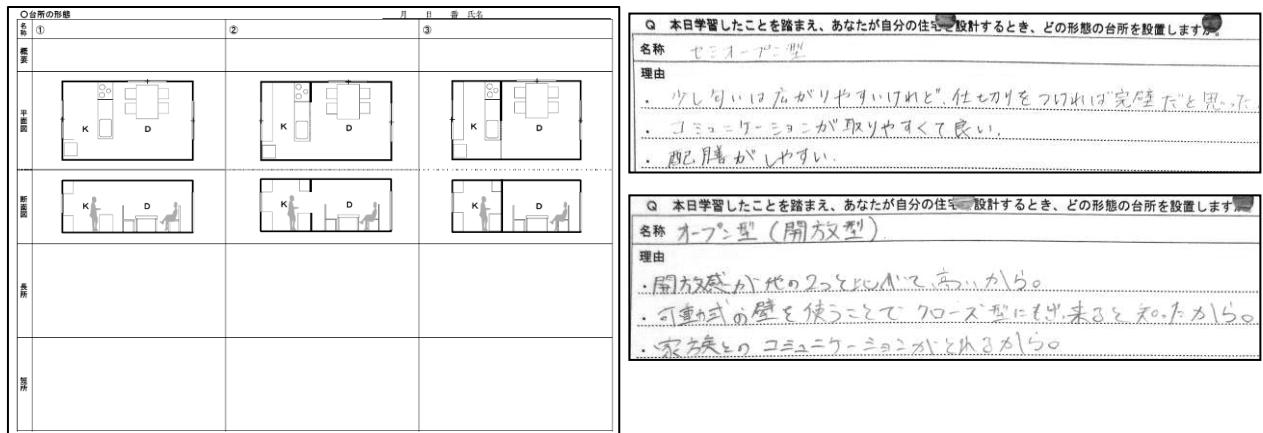 ○台所の形態
月 日 番 氏名
名称 ① ② ③
概要
平面図
K D K D K D
断面図
K D K D K D
長所
短所
Q 本日学習したことを踏まえ、あなたが自分の住宅を設計するとき、どの形態の台所を設置しますか。
名称 セミオープン型
理由
・少し匂いは広がりやすいけれど、仕切りをつければ完璧だと思った。
・コミュニケーションが取りやすくて良い。
・配膳がしやすい。
Q 本日学習したことを踏まえ、あなたが自分の住宅 設計するとき、どの形態の台所を設置します
名称 オープン型(開放型)
理由
・開放感が他の2つと比べて、高いから。
・可動式の壁を使うことでクローズ型にもでき来ると知ったから。
・家族とのコミュニケーションがとれるから。